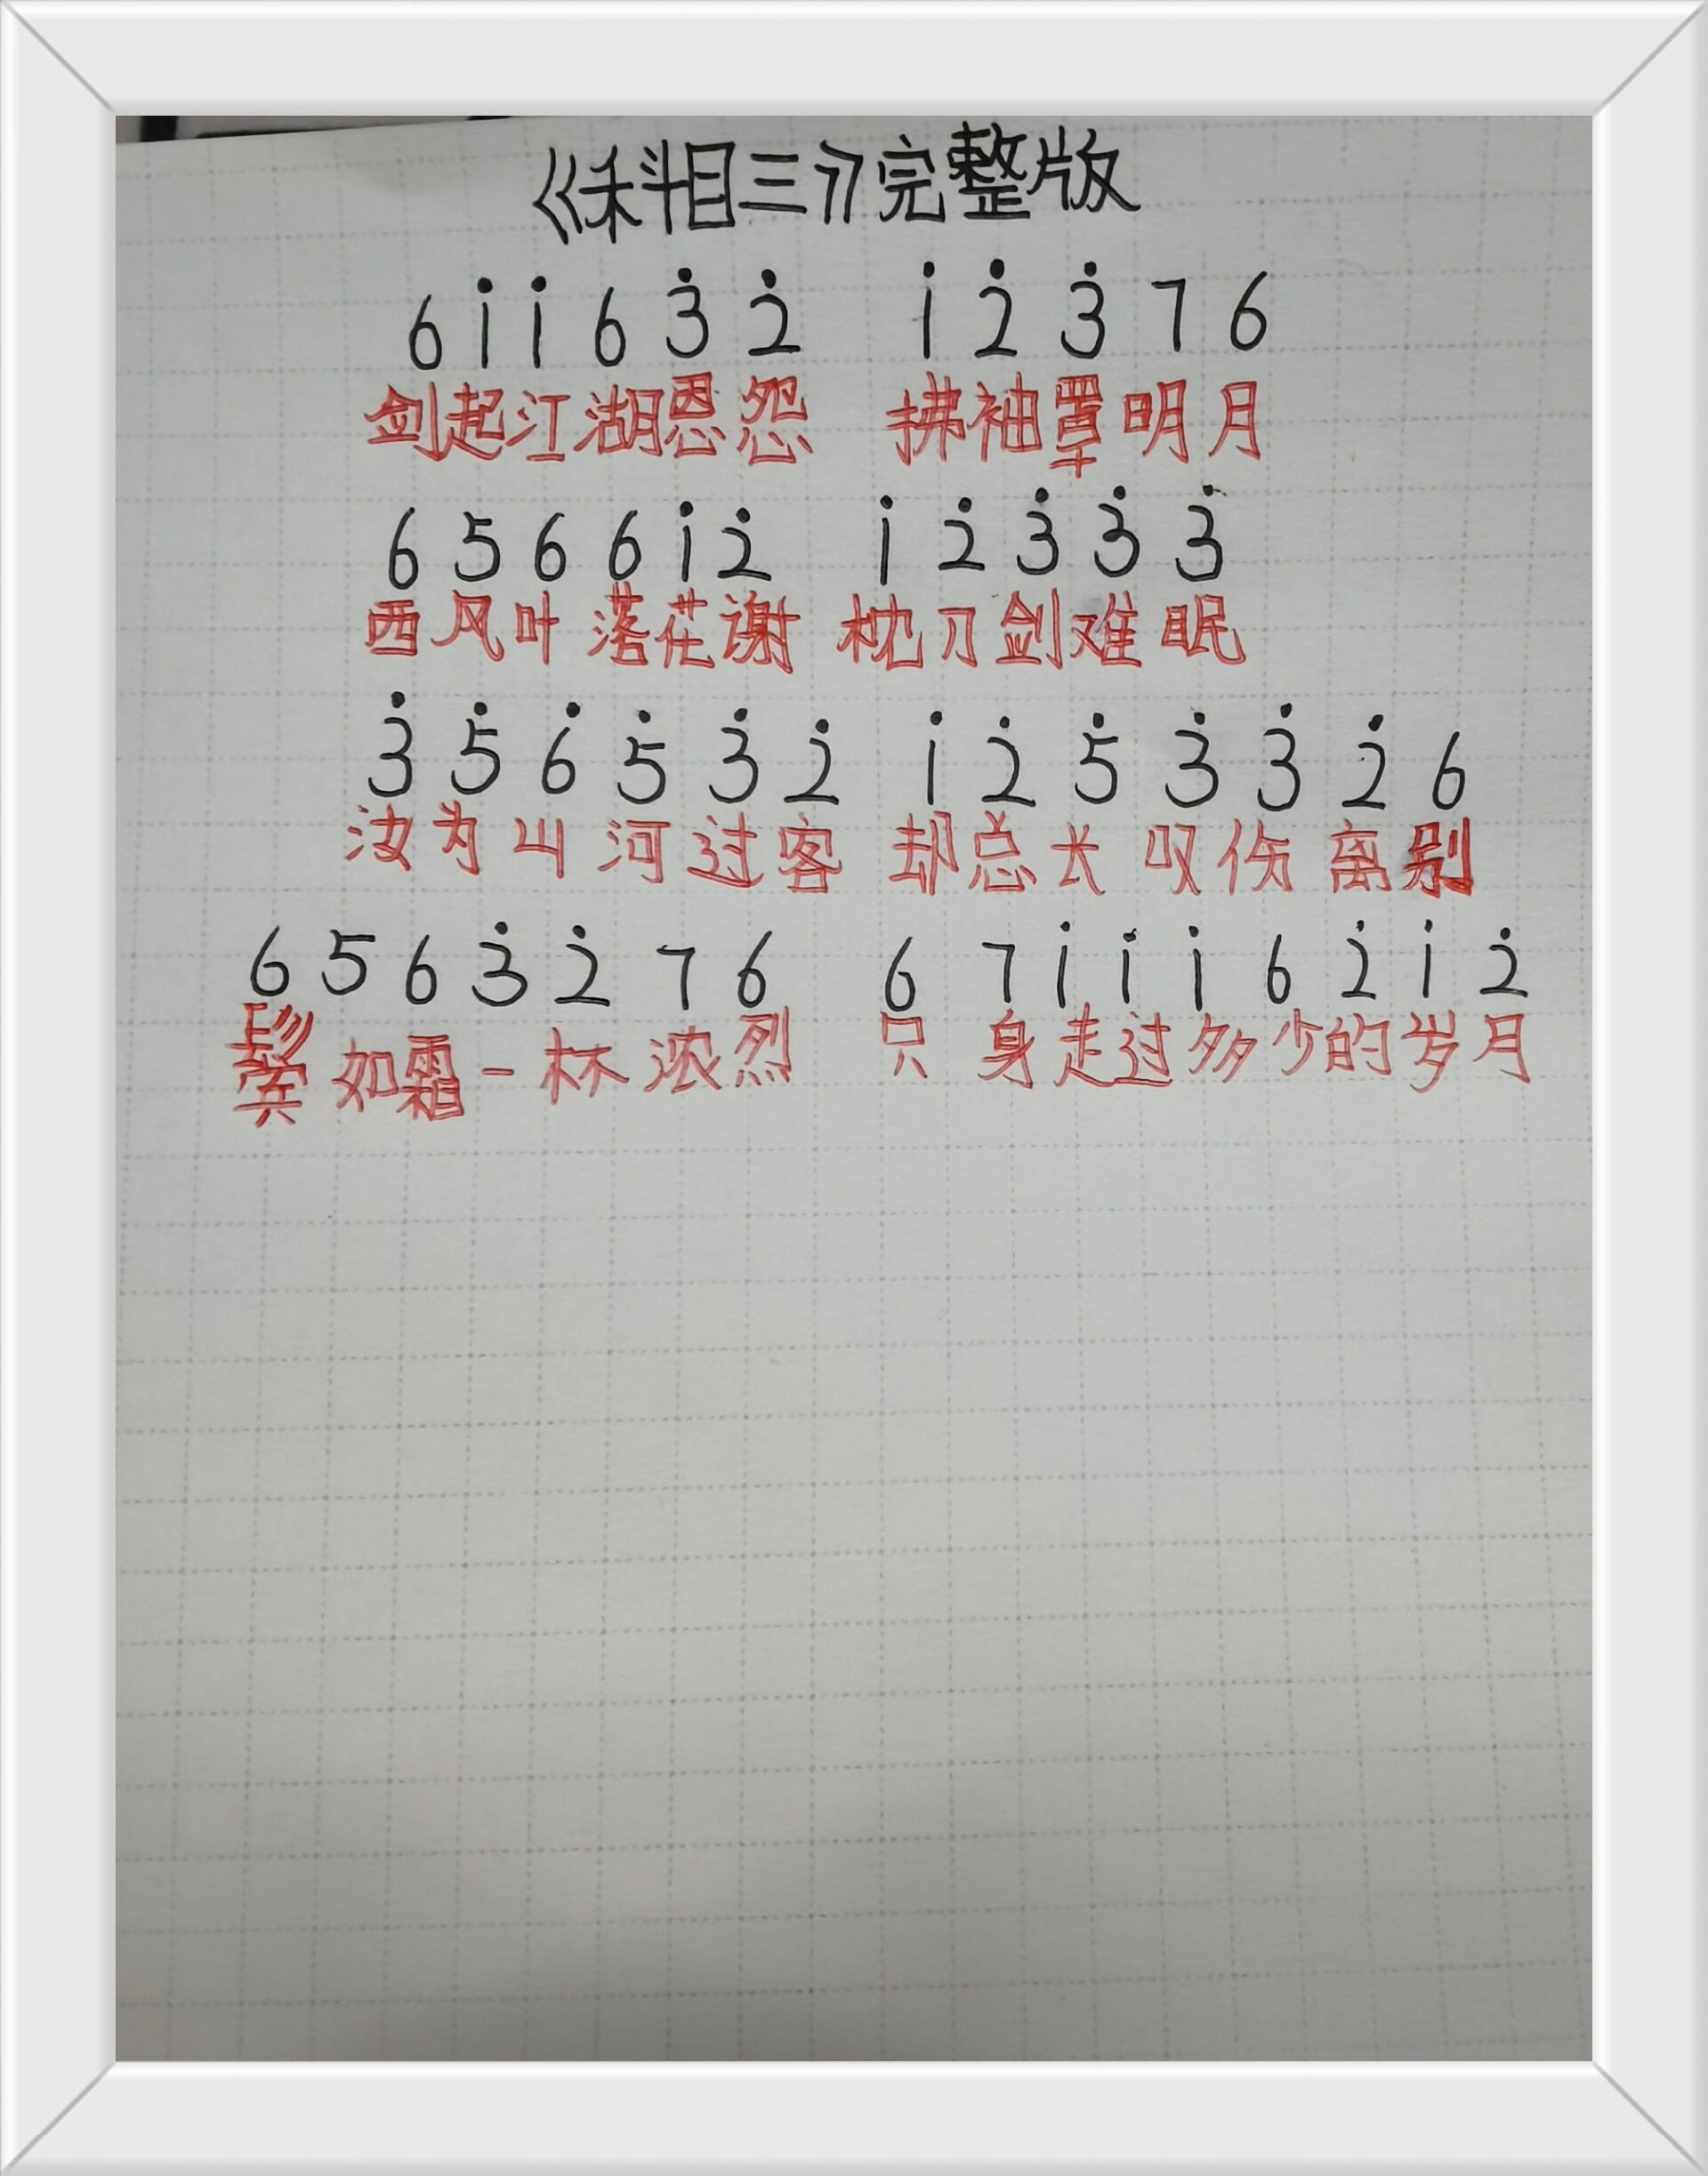 《科目三》完整版
6 i̇ i̇ 6 3̇ 2̇ 1̇ 2̇ 3̇ 7 6
剑起江湖恩怨 拂袖罩明月
6 5 6 6 1̇ 2̇ 1̇ 2̇ 3̇ 3̇ 3̇
西风叶落花谢 枕刀剑难眠
3̇ 5̇ 6̇ 5̇ 3̇ 2̇ 1̇ 2̇ 5̇ 3̇ 3̇ 2̇ 6
汝为山河过客 却总长叹伤离别
6 5 6 3̇ 2̇ 7 6 6 7 1̇ 1̇ 1̇ 6 2̇ 1̇ 2̇
鬓如霜一杯浓烈 只身走过多少的岁月